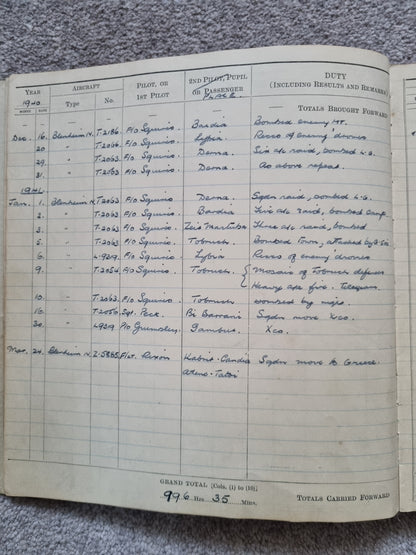 YEAR AIRCRAFT PILOT, OR 1ST PILOT 2ND PILOT, PUPIL OR PASSENGER PLACE DUTY (INCLUDING RESULTS AND REMARKS)
1940
MONTH DATE Type No.
— — — — — TOTALS BROUGHT FORWARD
Dec. 16. Blenheim IV. T.2186. P/O Squires. Bardia Bombed enemy MT.
20 " P/O Squires. Lybia Recco of enemy dromes
29. " T.2063. P/O Squires. Derna Six a/c raid, bombed L.G.
31. " T.2063 P/O Squires. Derna. As above repeat.
1941
Jan. 1. Blenheim IV. T.2063 P/O Squires. Derna Sqdn raid, bombed L.G.
2. " T.2063 P/O Squires. Bardia a/c raid, bombed camp
3. " T.2063 P/O Squires. Martuba Three a/c raid, bombed
5. " T.2063 P/O Squires. Tobruk. Bombed Town, attacked by
6. " P/O Squires. Lybia Recco of enemy dromes
9. " T.2054 P/O Squires. Tobruk. { Mosaic of Tobruk defences
Heavy ape fire.
10. " T.2063. P/O Squires. Tobruk by
16. " T.2050 Sgt. Peck. Bi Barrani Sqdn move Xco.
30. " P/O Grumbley. Gambut. Xco.
Mar. 24. Blenheim IV. Z.5885 F/Lt. Dixon Sqdn move to Greece.
GRAND TOTAL [Cols. (1) to (10)]
996 Hrs 35 Mins.
TOTALS CARRIED FORWARD